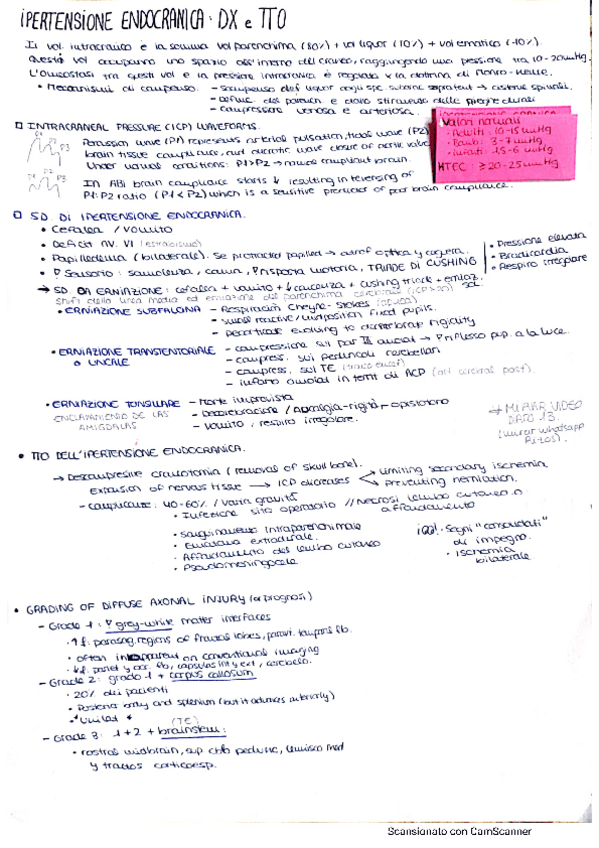 IPERTENSIONE ENDOCRANICA: DX e TTO
Il vol. intracranico è la somma vol parenchima (80%) + vol liquor (10%) + vol ematico (10%).
Questi vol occupano uno spazio all'interno del cranio, raggiungendo una pressione tra 10-20mmHg.
L'Omeostasi tra questi vol e la pressione intracranica è regolata x la dottrina di Monro-Kellie.
• Meccanismi di compenso: - del liquor dagli spazi →
- compressione venosa e arteriosa.
INTRACRANEAL PRESSURE (ICP) WAVEFORMS.
P1 P2 P3
Percussion wave (P1) represents arterial pulsation, tidal wave (P2)
brain tissue compliance, and dicrotic wave closure of aortic valve
Under normal conditions: P1>P2 → normal compliant brain.
In ABI brain compliance starts ↓ resulting in reversing of
P1:P2 ratio (P1<P2) which is a sensitive predictor of poor brain compliance.
Valori normali
• Adulti: 10-15 mmHg
• 3-7 mmHg
• 1.5-6 mmHg
HTEC: ≥20-25 mmHg
SD DI IPERTENSIONE ENDOCRANICA.
• Cefalea / vomito
• Deficit NV. VI (estrabismo)
• Papilledema (bilaterale). Se protratto papilled → atrof ottica y
• Sensorio: sonnolenza, coma, risposta motoria, TRIADE DI CUSHING
• Pressione elevata
• Bradicardia
• Respiro irregolare
→ SD DA ERNIAZIONE: cefalea + vomito + ↓ coscienza + cushing triade +
Shift della linea media ed erniazione del parenchima cerebrale (ICP>20)
• ERNIAZIONE SUBFALCINA - Respiración Cheyne-Stokes
- small reactive / midposition fixed pupils.
- Decorticate evolving to decerebrate rigidity
• ERNIAZIONE TRANSTENTORIALE
o UNCALE
- compressione sul par III → riflesso pup. a la luce.
- compress. sui peduncoli cerebellari
- compress. sul TE
- infarto in territ di ACP (art cerebral post).
• ERNIAZIONE TONSILLARE
ENCLAVAMIENTO DE LAS
AMIGDALAS
- Morte improvvisa
- Decerebrazione / - opistotono
- vomito, respiro irregolare.
→ MIRAR VIDEO
(mirar whatsapp
• TTO DELL'IPERTENSIONE ENDOCRANICA.
→ Descompresive craniotomia (removal of skull bone).
Expansion of nervous tissue → ICP decreases
limiting secondary ischemia
preventing herniation.
- complicanze: 40-60% / varia gravità
• Infezione sito operatorio // Necrosi lembo cutaneo o
affondamento
• sanguinamento intraparenchimale
• Ematoma extradurale.
• Affondamento del lembo cutaneo
• Pseudomeningocele
Segni "
di impegno.
• Ischemia
bilaterale
• GRADING OF DIFFUSE AXONAL INJURY (x prognosi)
- Grade 1: grey-white matter interfaces
• f: parasag. regions of frontal lobes, temporal lb.
• often inapparent on conventional imaging
• capsula int y ext, cerebelo.
- Grade 2: grado 1 + corpus callosum
• 20% dei pazienti
• Posterior body and splenium (but it advances anteriorly)
• Unilat
(TE)
- Grade 3: 1+2 + brainstem:
• rostral midbrain, sup cereb pedunc, lemnisco med
y tractos corticoesp.
Scansionato con CamScanner